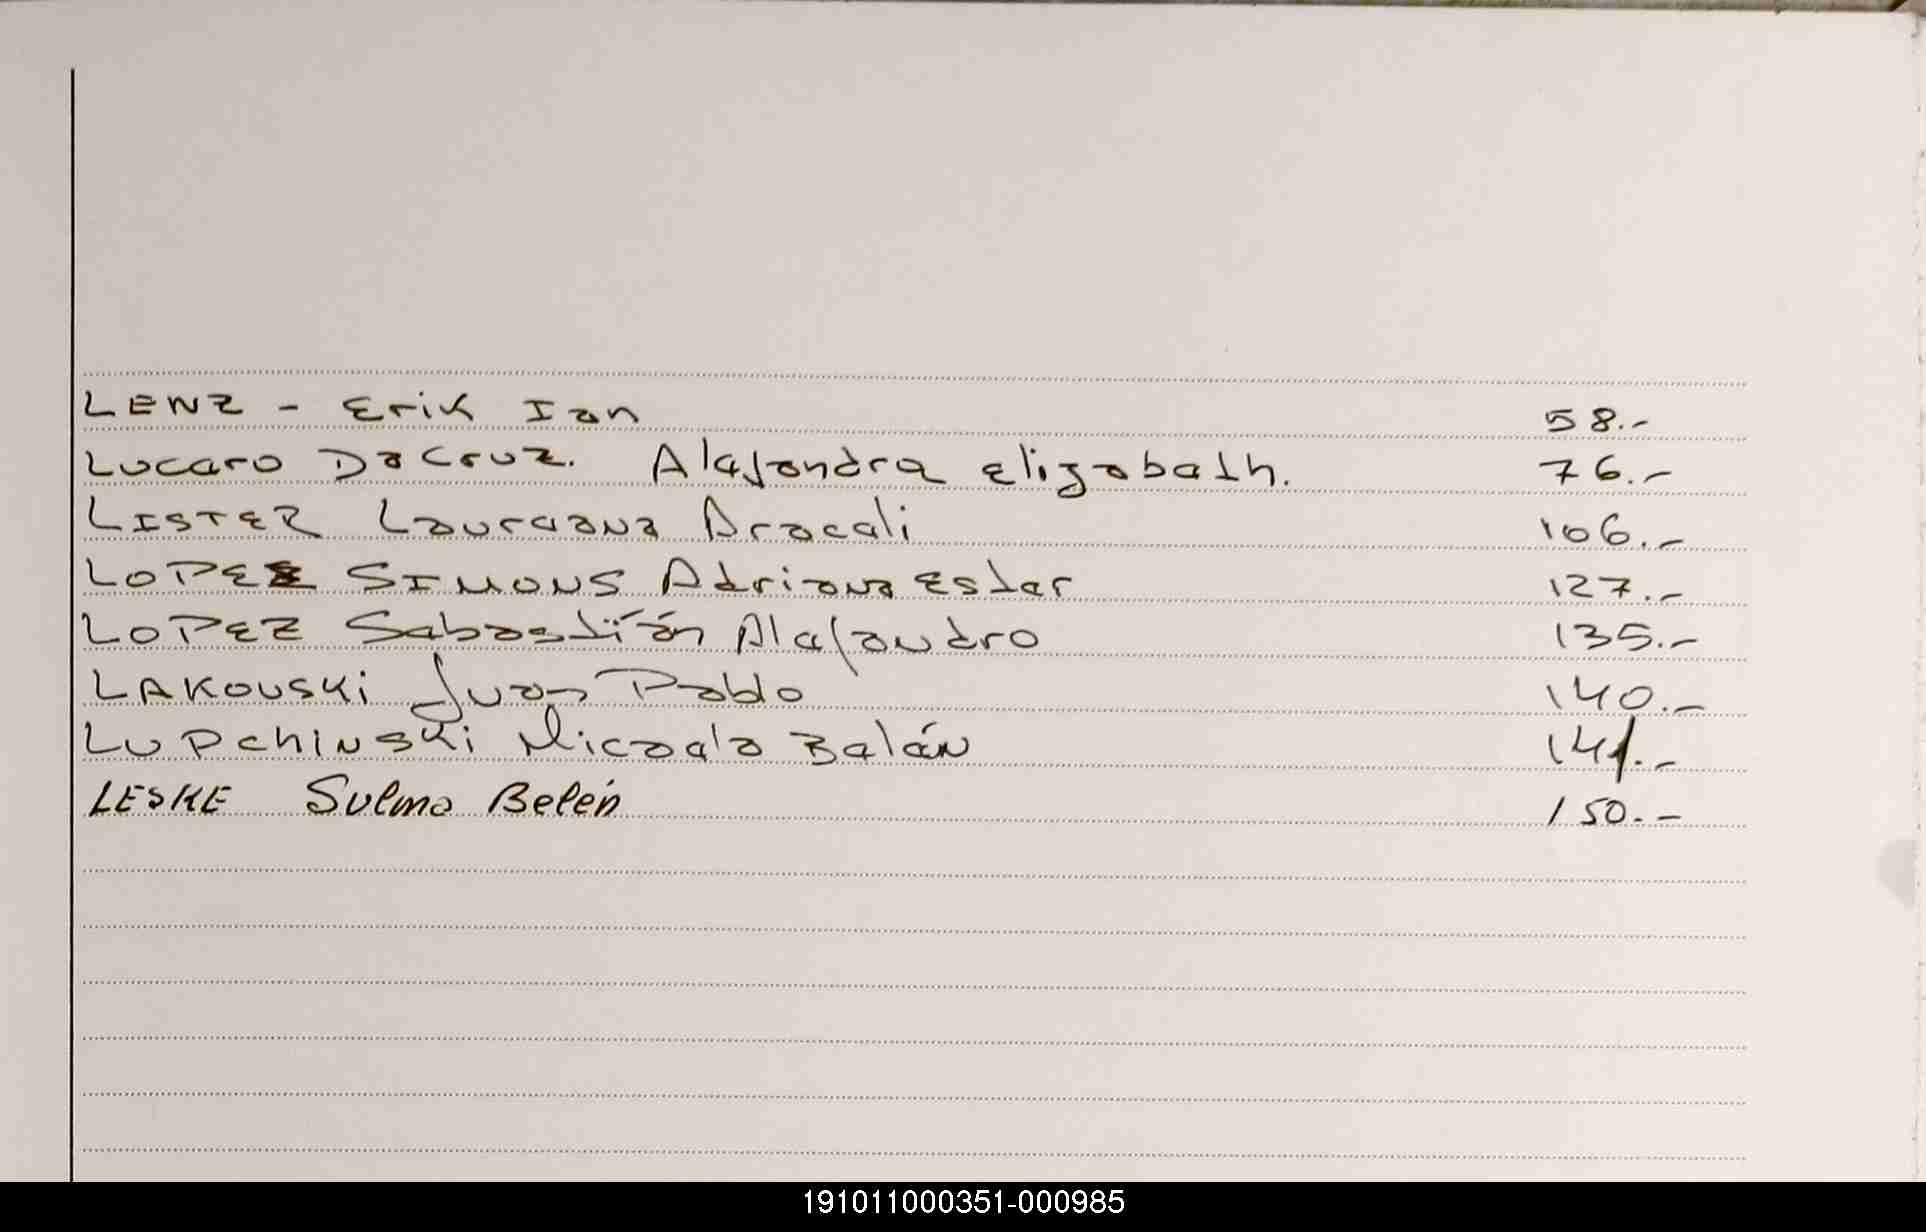 LENZ - Erik Ian 58.-
Lucero DaCruz. Alejandra Elizabeth. 76.-
LISTER Laureana Araceli 106.-
LOPEZ SIMONS Adriana Ester 127.-
LOPEZ Sebastián Alejandro 135.-
LAKOUSKi Juan Pablo 140.-
LUPChINSKi Micaela Belén 141.-
LESKE Sulma Belén 150.-
191011000351-000985